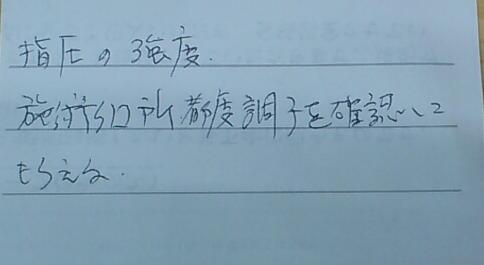 指圧の強度.
施術個所、都度調子を確認して
もらえる.